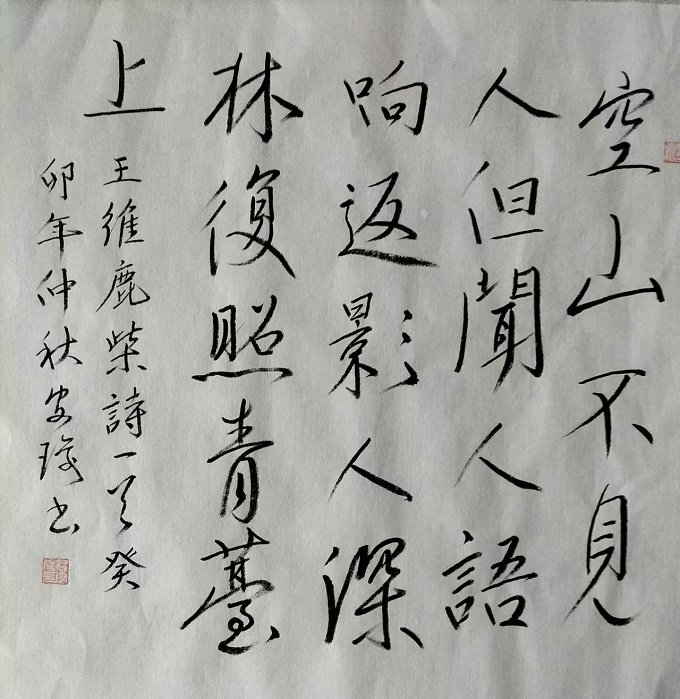 空山不見
人但聞人語
响返影人深
林復照青薹
上
王維鹿柴詩一首癸
卯年仲秋安璲书